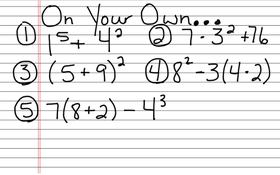 On Your Own...
① 1⁵ + 4² ② 7 · 3² + 76
③ (5 + 9)² ④ 8² - 3(4 · 2)
⑤ 7(8 + 2) - 4³